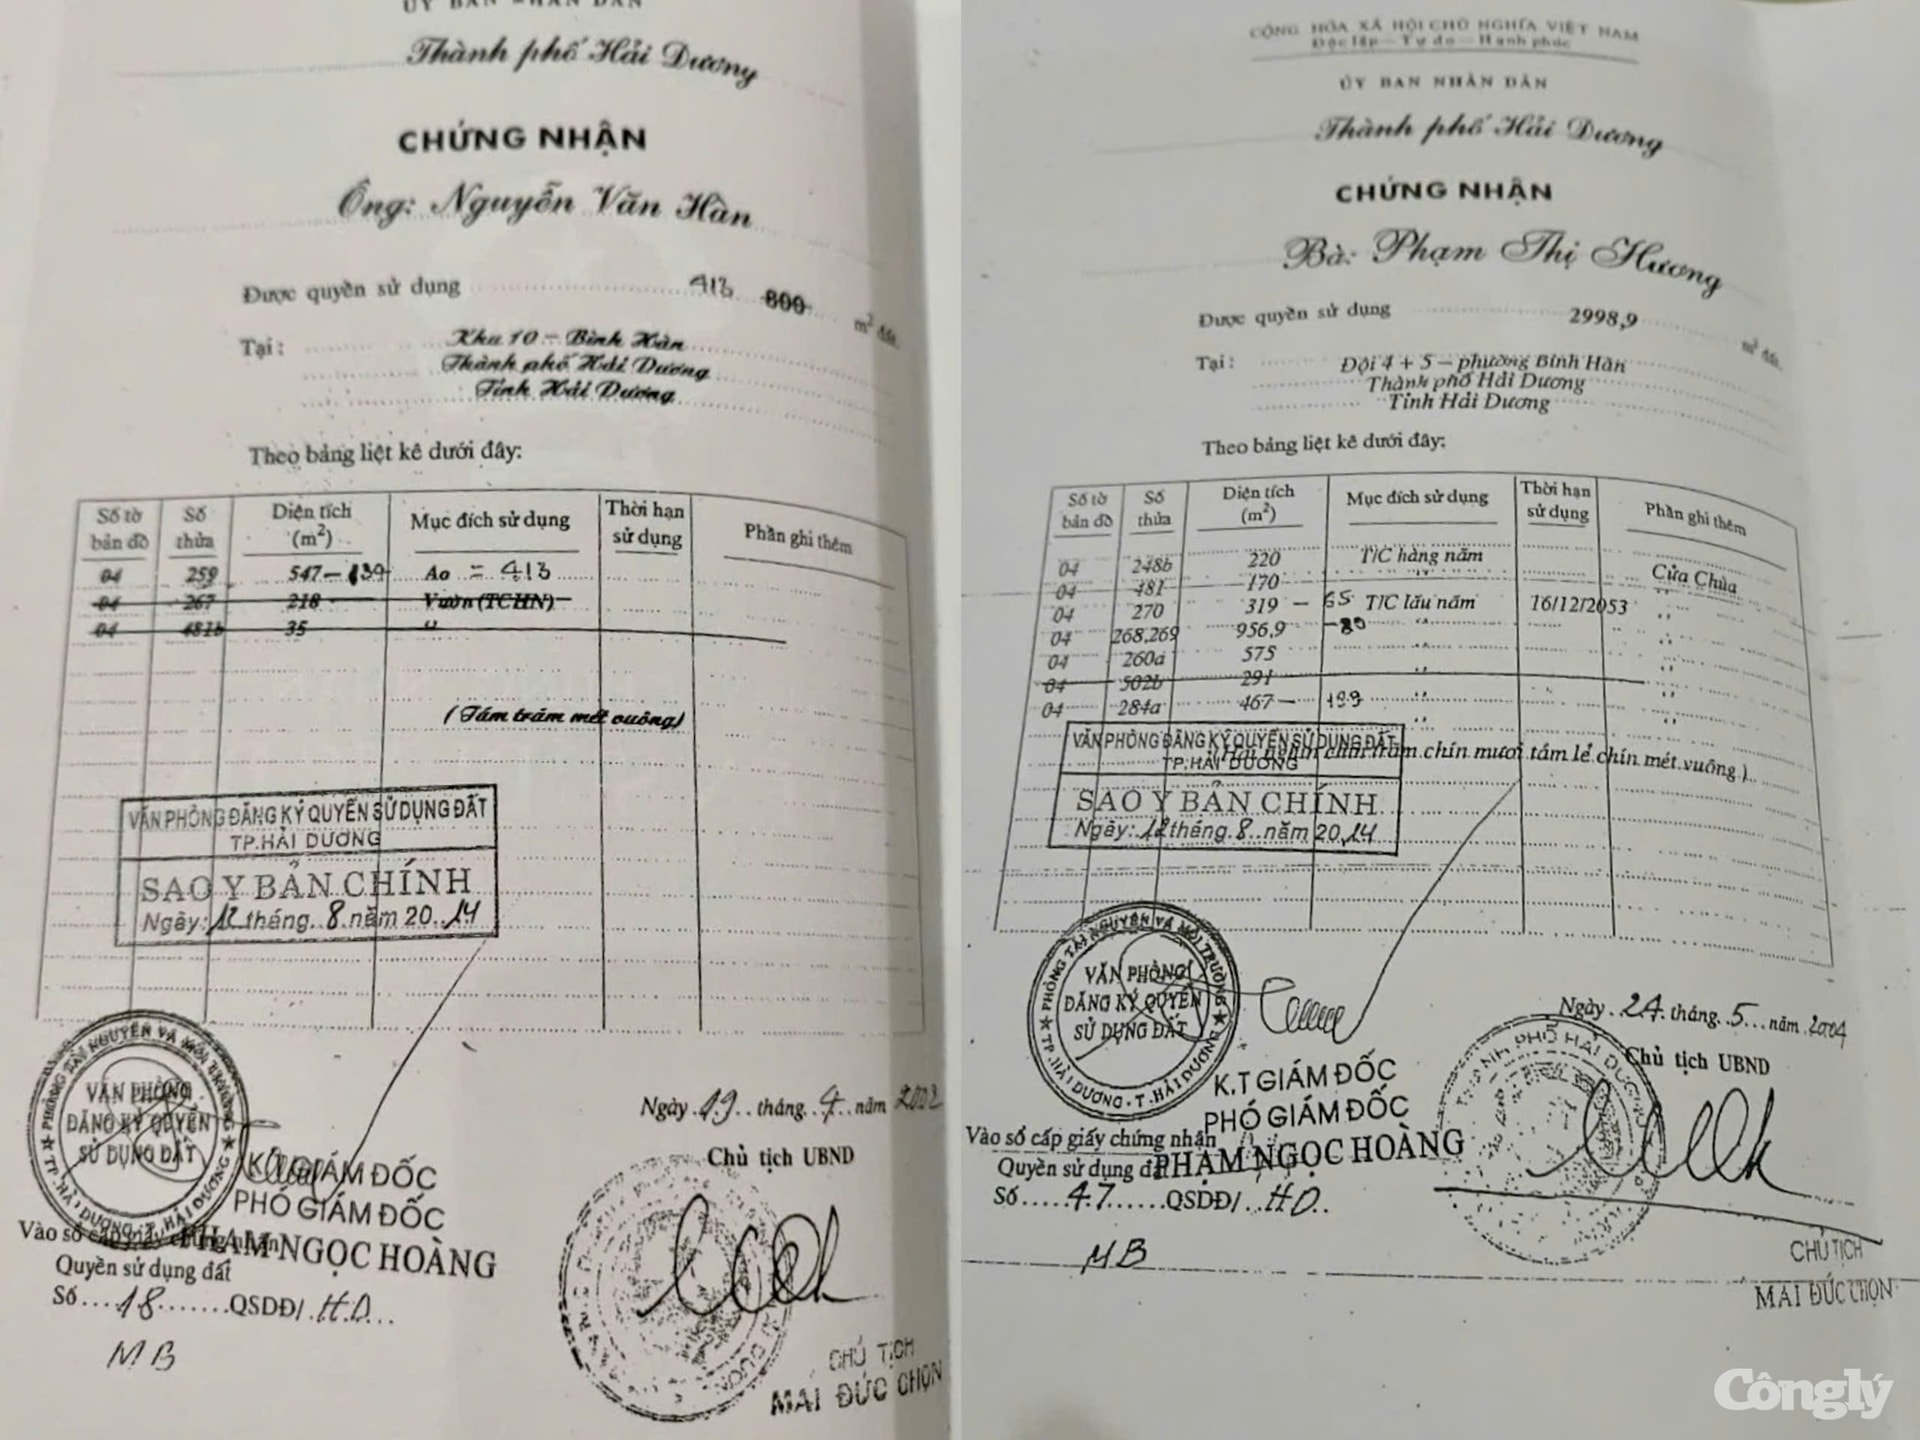 ỦY BAN NHÂN DÂN
Thành phố Hải Dương
CHỨNG NHẬN
Ông: Nguyễn Văn Hàn
Được quyền sử dụng 413 800 m² đất.
Tại: Khu 10 – Bình Hàn
Thành phố Hải Dương
Tỉnh Hải Dương
Theo bảng liệt kê dưới đây:
Số tờ bản đồ Số thửa Diện tích (m²) Mục đích sử dụng Thời hạn sử dụng Phần ghi thêm
04 259 547 – 139 Ao = 413
04 267 218 Vườn (TCHN)
04 481b 35 "
(Tám trăm mét vuông)
VĂN PHÒNG ĐĂNG KÝ QUYỀN SỬ DỤNG ĐẤT
TP.HẢI DƯƠNG
SAO Y BẢN CHÍNH
Ngày: 12 tháng 8 năm 2014
PHÒNG TÀI NGUYÊN VÀ MÔI TRƯỜNG
VĂN PHÒNG
ĐĂNG KÝ QUYỀN
SỬ DỤNG ĐẤT
TP. HẢI DƯƠNG - T. HẢI DƯƠNG
K.T GIÁM ĐỐC
PHÓ GIÁM ĐỐC
PHẠM NGỌC HOÀNG
Ngày 19 tháng 4 năm 2002
Chủ tịch UBND
Vào sổ cấp giấy chứng nhận
Quyền sử dụng đất
Số 18 QSDĐ/ H.D
MB
CHỦ TỊCH
MAI ĐỨC CHỌN
CỘNG HÒA XÃ HỘI CHỦ NGHĨA VIỆT NAM
Độc lập – Tự do – Hạnh phúc
ỦY BAN NHÂN DÂN
Thành phố Hải Dương
CHỨNG NHẬN
Bà: Phạm Thị Hương
Được quyền sử dụng 2998,9 m² đất.
Tại: Đội 4 + 5 – phường Bình Hàn
Thành phố Hải Dương
Tỉnh Hải Dương
Theo bảng liệt kê dưới đây:
Số tờ bản đồ Số thửa Diện tích (m²) Mục đích sử dụng Thời hạn sử dụng Phần ghi thêm
04 248b 220 T/C hàng năm Cửa Chùa
04 481 170 " "
04 270 319 – 65 T/C lâu năm 16/12/2053 "
04 268,269 956,9 – 80 " "
04 260a 575 " "
04 502b 291 " "
04 284a 467 – 199 " "
(Hai nghìn chín trăm chín mươi tám lẻ chín mét vuông)
VĂN PHÒNG ĐĂNG KÝ QUYỀN SỬ DỤNG ĐẤT
TP.HẢI DƯƠNG
SAO Y BẢN CHÍNH
Ngày: 12 tháng 8 năm 2014
PHÒNG TÀI NGUYÊN VÀ MÔI TRƯỜNG
VĂN PHÒNG
ĐĂNG KÝ QUYỀN
SỬ DỤNG ĐẤT
TP. HẢI DƯƠNG - T. HẢI DƯƠNG
K.T GIÁM ĐỐC
PHÓ GIÁM ĐỐC
PHẠM NGỌC HOÀNG
Ngày 24 tháng 5 năm 2004
Chủ tịch UBND
THÀNH PHỐ HẢI DƯƠNG
Vào sổ cấp giấy chứng nhận
Quyền sử dụng đất
Số 47 QSDĐ/ H.D
MB
CHỦ TỊCH
MAI ĐỨC CHỌN
Cônglý